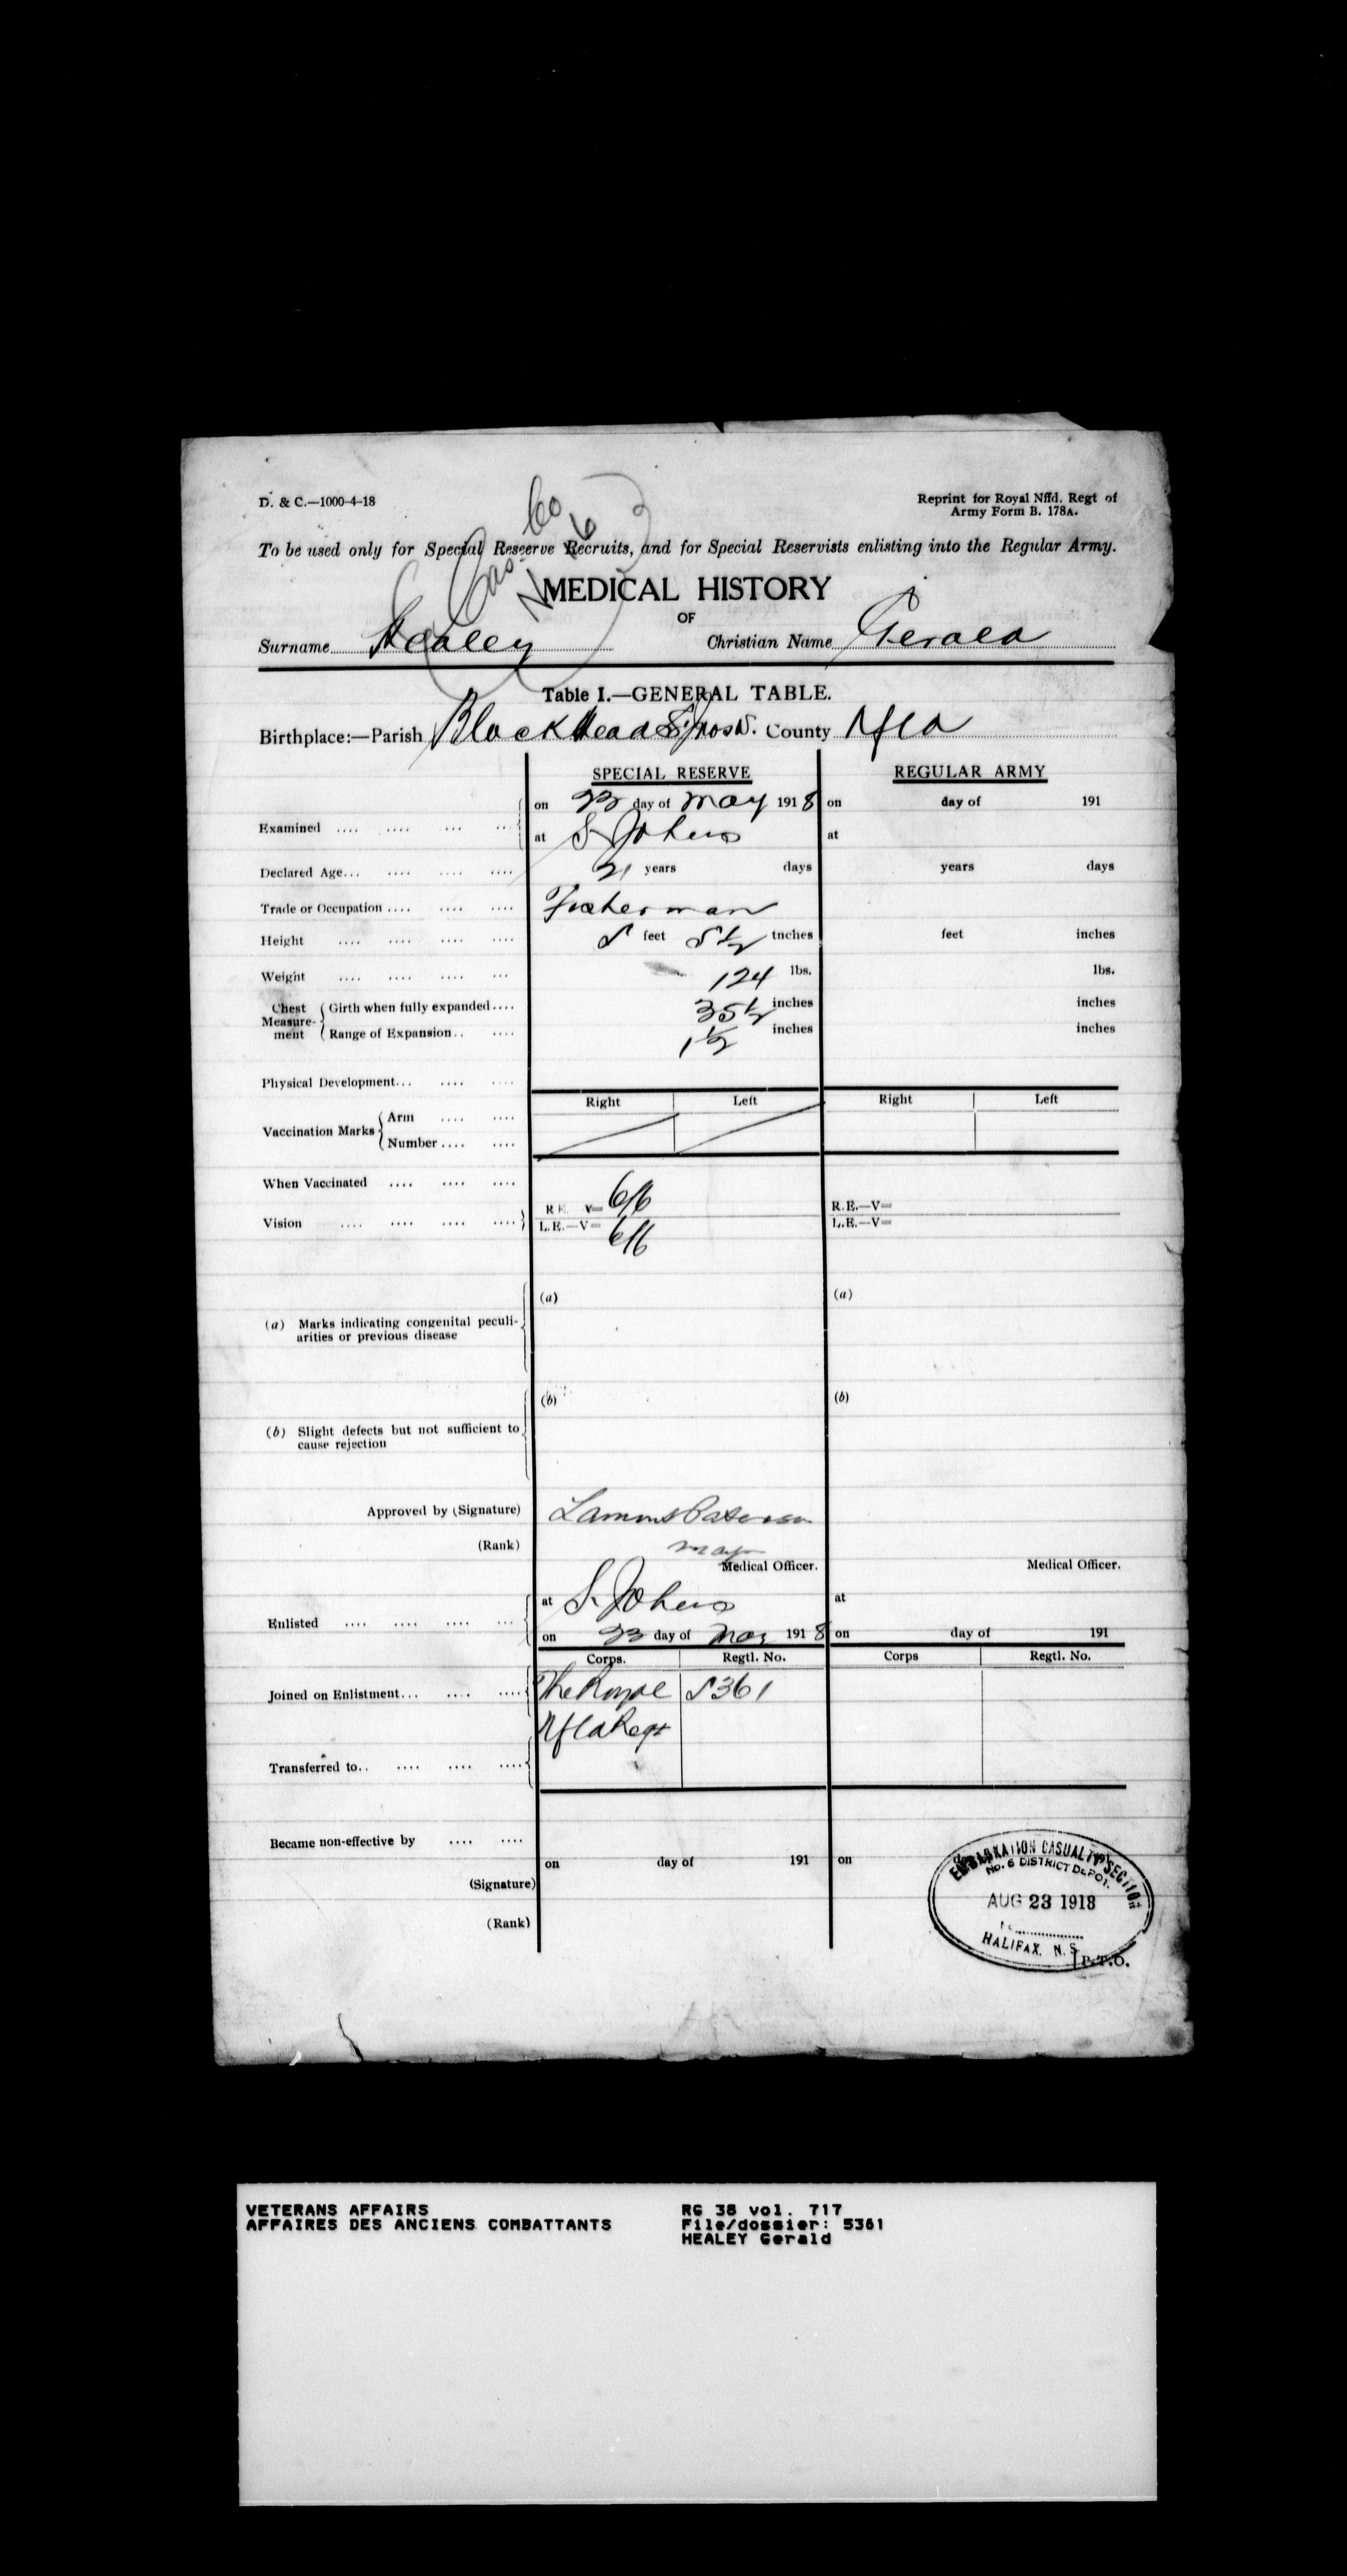 D. & C.—1000-4-18
Reprint for Royal Nffd. Regt of
Army Form B. 178A.
To be used only for Special Reserve Recruits, and for Special Reservists enlisting into the Regular Army.
MEDICAL HISTORY
OF
Surname Healey Christian Name Gerald
Table I.—GENERAL TABLE.
Birthplace:—Parish Black Head County Nfld
SPECIAL RESERVE REGULAR ARMY
on 23 day of May 1918 on day of 191
Examined .... .... ... ...
at St Johns at
Declared Age... .... .... .... 21 years days years days
Trade or Occupation .... .... .... Fisherman
Height .... .... .... .... 5 feet 5½ inches feet inches
Weight .... .... .... ... 124 lbs. lbs.
Chest Measurement Girth when fully expanded .... 35½ inches inches
Range of Expansion .. .... 1½ inches inches
Physical Development... .... ....
Right Left Right Left
Vaccination Marks Arm .... ....
Number .... ....
When Vaccinated .... .... ....
Vision .... .... .... ....
R.E.—V= 6/6 R.E.—V=
L.E.—V= 6/6 L.E.—V=
(a) (a)
(a) Marks indicating congenital peculi-
arities or previous disease
(b) (b)
(b) Slight defects but not sufficient to
cause rejection
Approved by (Signature) Lamont Paterson
(Rank) Major
Medical Officer. Medical Officer.
at St Johns at
Enlisted .... .... .... ...
on 23 day of May 1918 on day of 191
Corps. Regtl. No. Corps Regtl. No.
Joined on Enlistment... .... .... The Royal 5361
Nfld Regt
Transferred to.. .... .... ....
Became non-effective by .... ....
on day of 191 on
(Signature)
(Rank)
EMBARKATION CASUALTY SECTION
No. 6 DISTRICT DEPOT.
AUG 23 1918
HALIFAX, N.S.
[P.T.O.
VETERANS AFFAIRS RG 38 vol. 717
AFFAIRES DES ANCIENS COMBATTANTS File/dossier: 5361
HEALEY Gerald